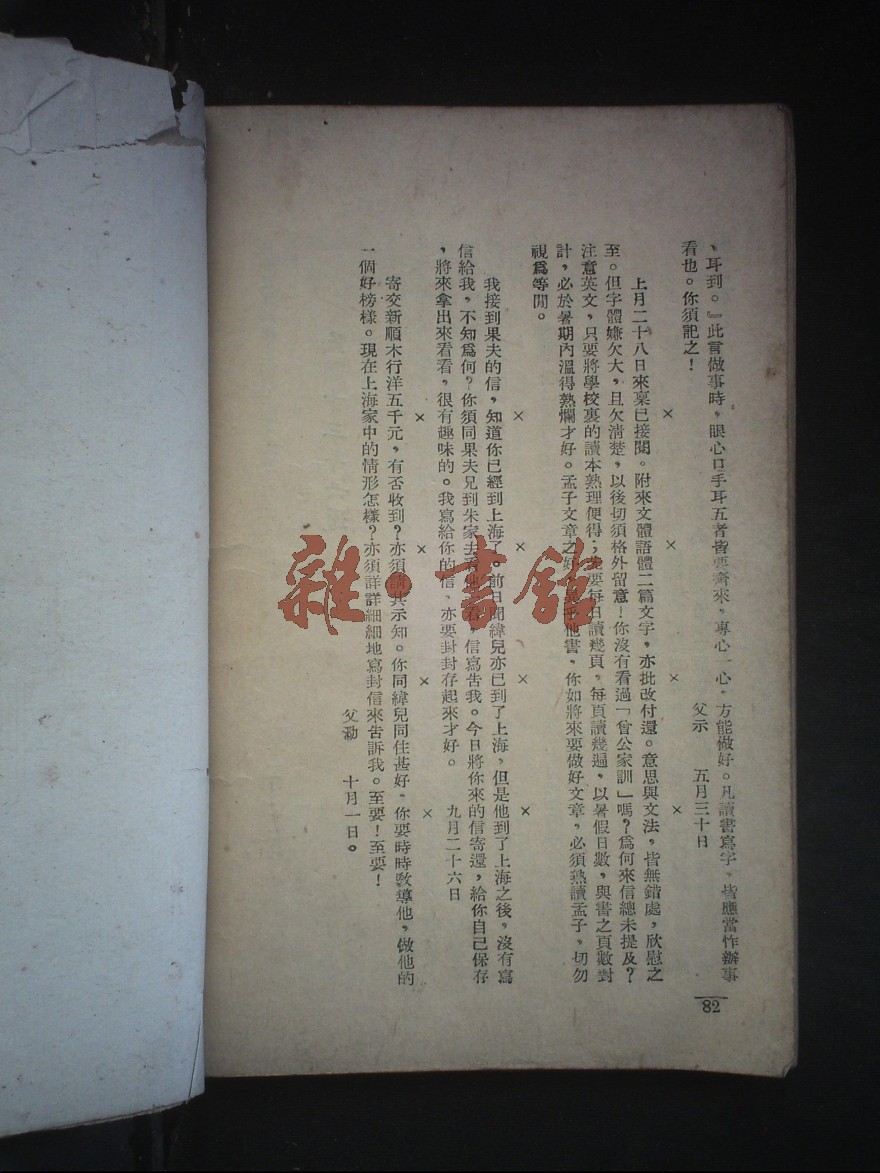 、耳到。』此言做事時，眼心口手耳五者皆要齊來，專心一心，方能做好。凡讀書寫字，皆應當作辦事
看也。你須記之！
父示 五月三十日
× × × ×
上月二十八日來稟已接閱。附來文體語體二篇文字，亦批改付還。意思與文法，皆無錯處，欣慰之
至。但字體嫌欠大，且欠清楚，以後切須格外留意！你沒有看過「曾公家訓」嗎？爲何來信總未提及？
注意英文，只要將學校裏的讀本熟理便得；要每日讀幾頁，每頁讀幾遍，以暑假日數，與書之頁數對
計，必於暑期內溫得熟爛才好。孟子文章之好，他書，你如將來要做好文章，必須熟讀孟子，切勿
視爲等閒。
× × × ×
我接到果夫的信，知道你已經到上海了。前日聞緯兒亦已到了上海，但是他到了上海之後，沒有寫
信給我，不知爲何？你須同果夫兄到朱家去看他，信寫告我。今日將你來的信寄還，給你自己保存
，將來拿出來看看，很有趣味的。我寫給你的信，亦要封封存起來才好。
九月二十六日
× × × ×
寄交新順木行洋五千元，有否收到？亦須示知。你同緯兒同住甚好，你要時時敎導他，做他的
一個好榜樣。現在上海家中的情形怎樣？亦須詳詳細細地寫封信來告訴我。至要！至要！
父泐 十月一日。
82
雜·書館